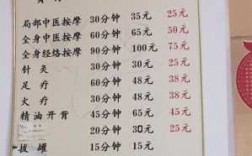 局部中医按摩 30分钟 35元 25元
全身中医按摩 60分钟 65元 50元
全身经络按摩 90分钟 100元 75元
针灸 30分钟 45元 30元
足疗 60分钟 48元 38元
火疗 30分钟 48元 38元
精油开背 45分钟 65元 45元
20分钟 30元 25元
拔罐 15分钟 15元